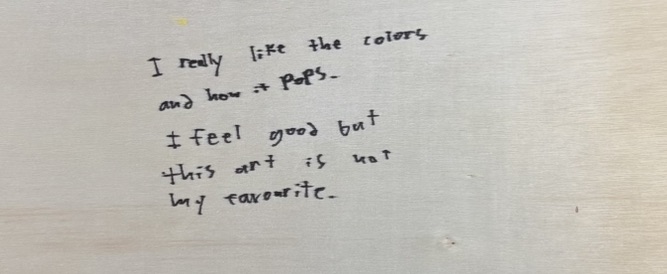 I really like the colors
and how it pops.
I feel good but
this art is not
my favourite.